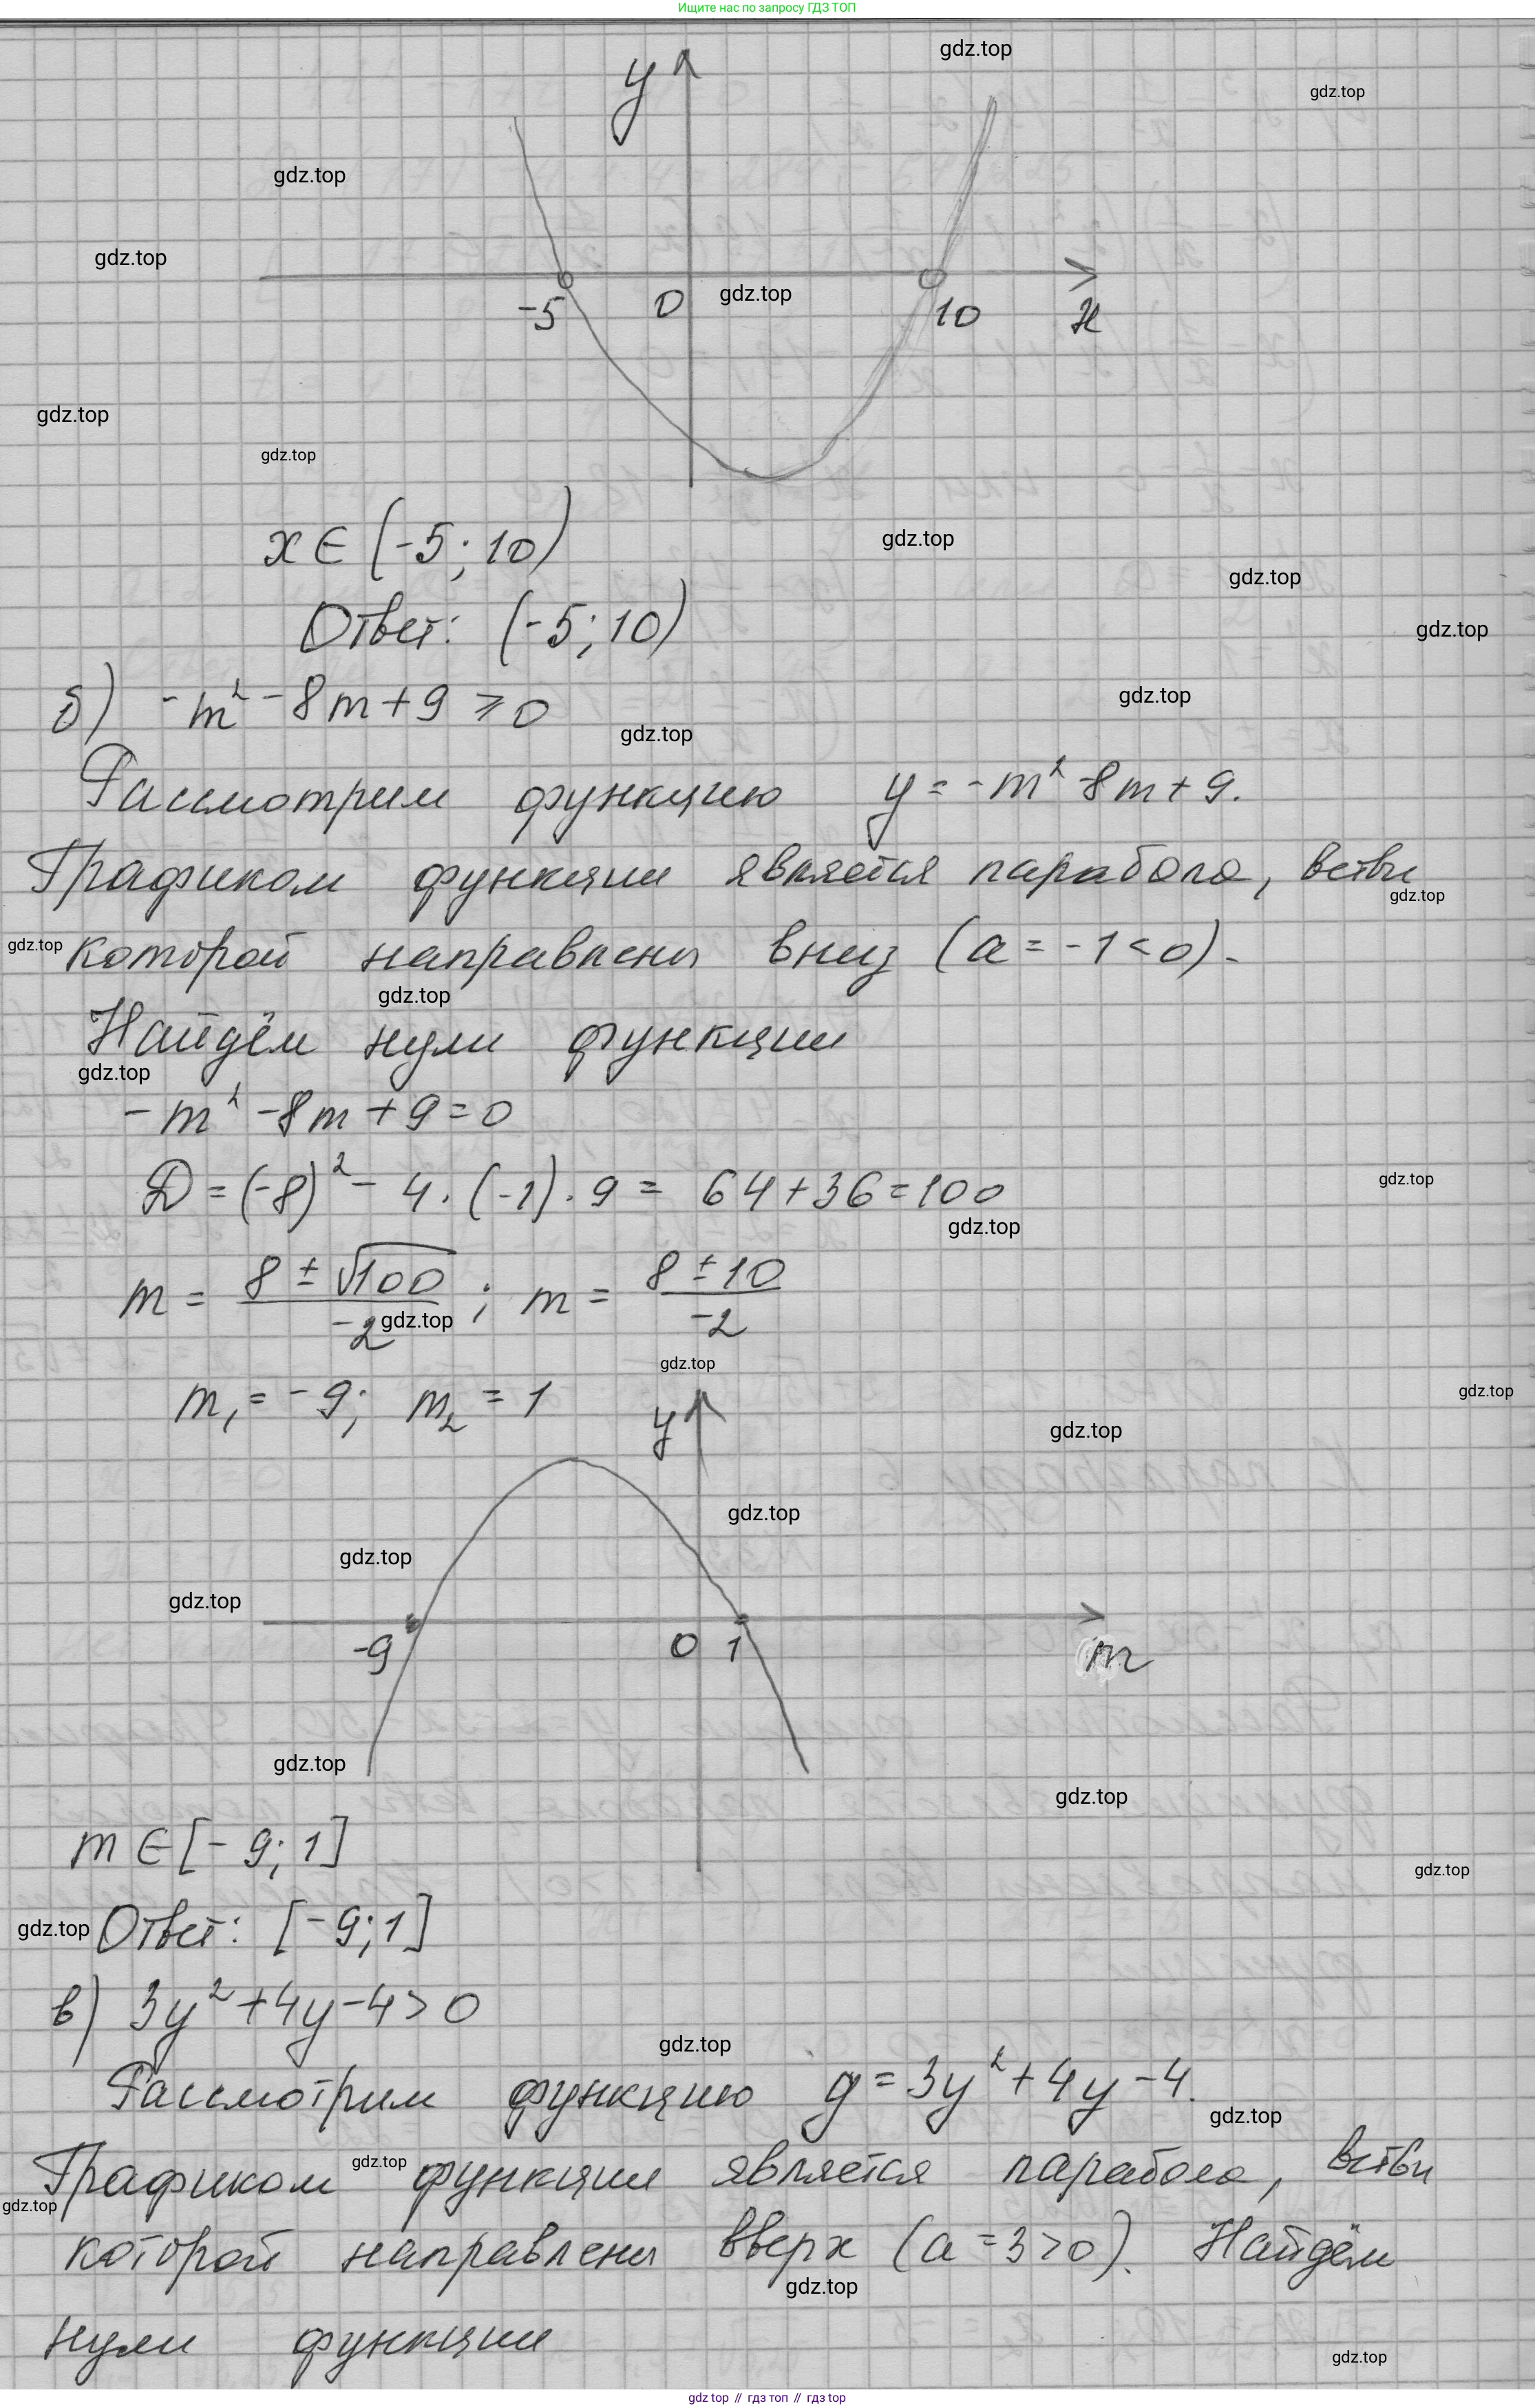 Ищите нас по запросу ГДЗ ТОП
gdz.top
y
gdz.top
gdz.top
gdz.top
-5 0 gdz.top 10 x
gdz.top
gdz.top
x ∈ (-5; 10)
gdz.top
gdz.top
Ответ: (-5; 10)
gdz.top
б) -m² - 8m + 9 ≥ 0
gdz.top
gdz.top
Рассмотрим функцию y = -m² - 8m + 9.
Графиком функции является парабола, ветви
gdz.top
gdz.top
которой направлены вниз (a = -1 < 0).
gdz.top
Найдём нули функции
gdz.top
-m² - 8m + 9 = 0
D = (-8)² - 4 · (-1) · 9 = 64 + 36 = 100
gdz.top
gdz.top
m = (8 ± √100)/-2; m = (8 ± 10)/-2
gdz.top
gdz.top
gdz.top
m₁ = -9; m₂ = 1
y
gdz.top
gdz.top
gdz.top
gdz.top
-9 0 1 m
gdz.top
gdz.top
m ∈ [-9; 1]
gdz.top
gdz.top
Ответ: [-9; 1]
в) 3y² + 4y - 4 > 0
gdz.top
Рассмотрим функцию g = 3y² + 4y - 4.
gdz.top
gdz.top
Графиком функции является парабола, ветви
gdz.top
которой направлены вверх (a = 3 > 0). Найдём
gdz.top
нули функции
gdz.top
gdz top // гдз топ // gdz top